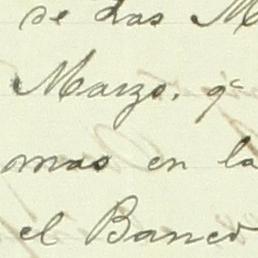 de las M
Marzo, qe
mas en la
el Banco